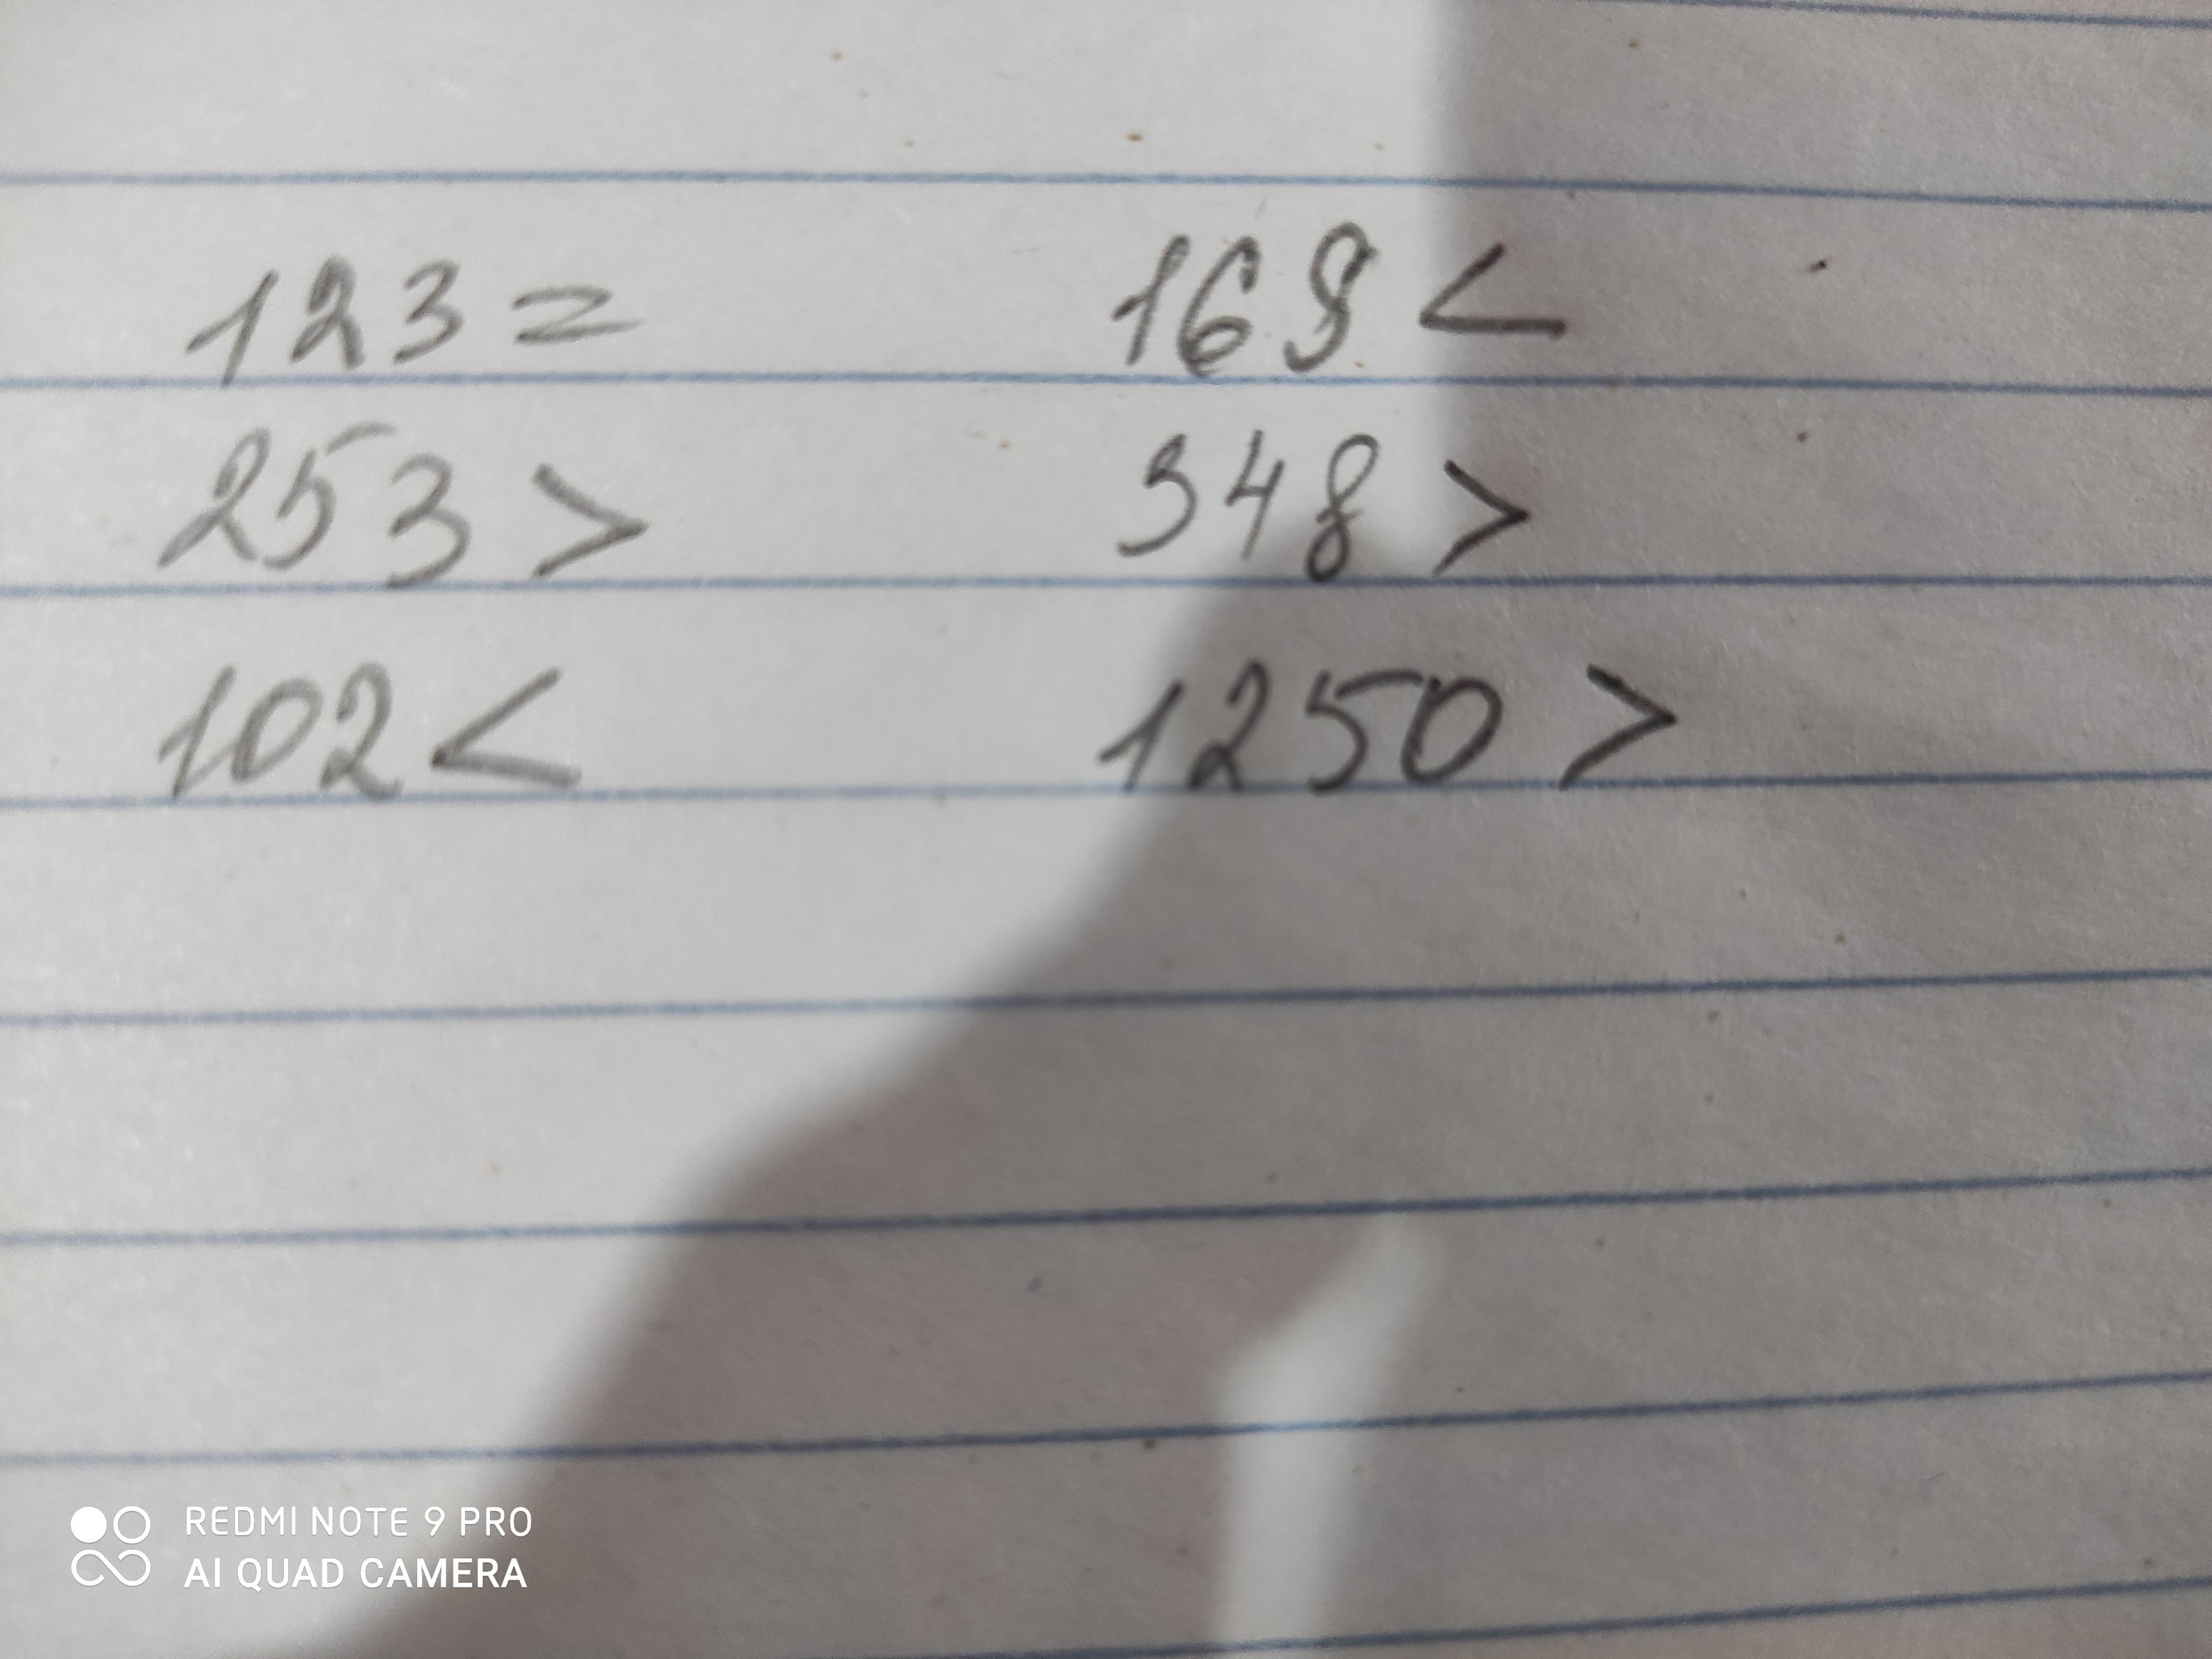 123=
169<
253>
348>
102<
1250>
REDMI NOTE 9 PRO
AI QUAD CAMERA